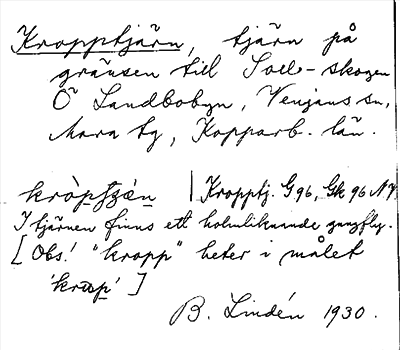 Kropptjärn, tjärn på
gränsen till Soll-skogen
Ö Landbobyn, Venjans sn,
Mora tg, Kopparb. län.
kròpt̯ʒæ̀n | Kropptj. G 96, Gk 96 NV.
I tjärnen finns ett holmliknande gungfly.
[Obs! "kropp" heter i målet
'krɯp' ]
B. Lindén 1930.